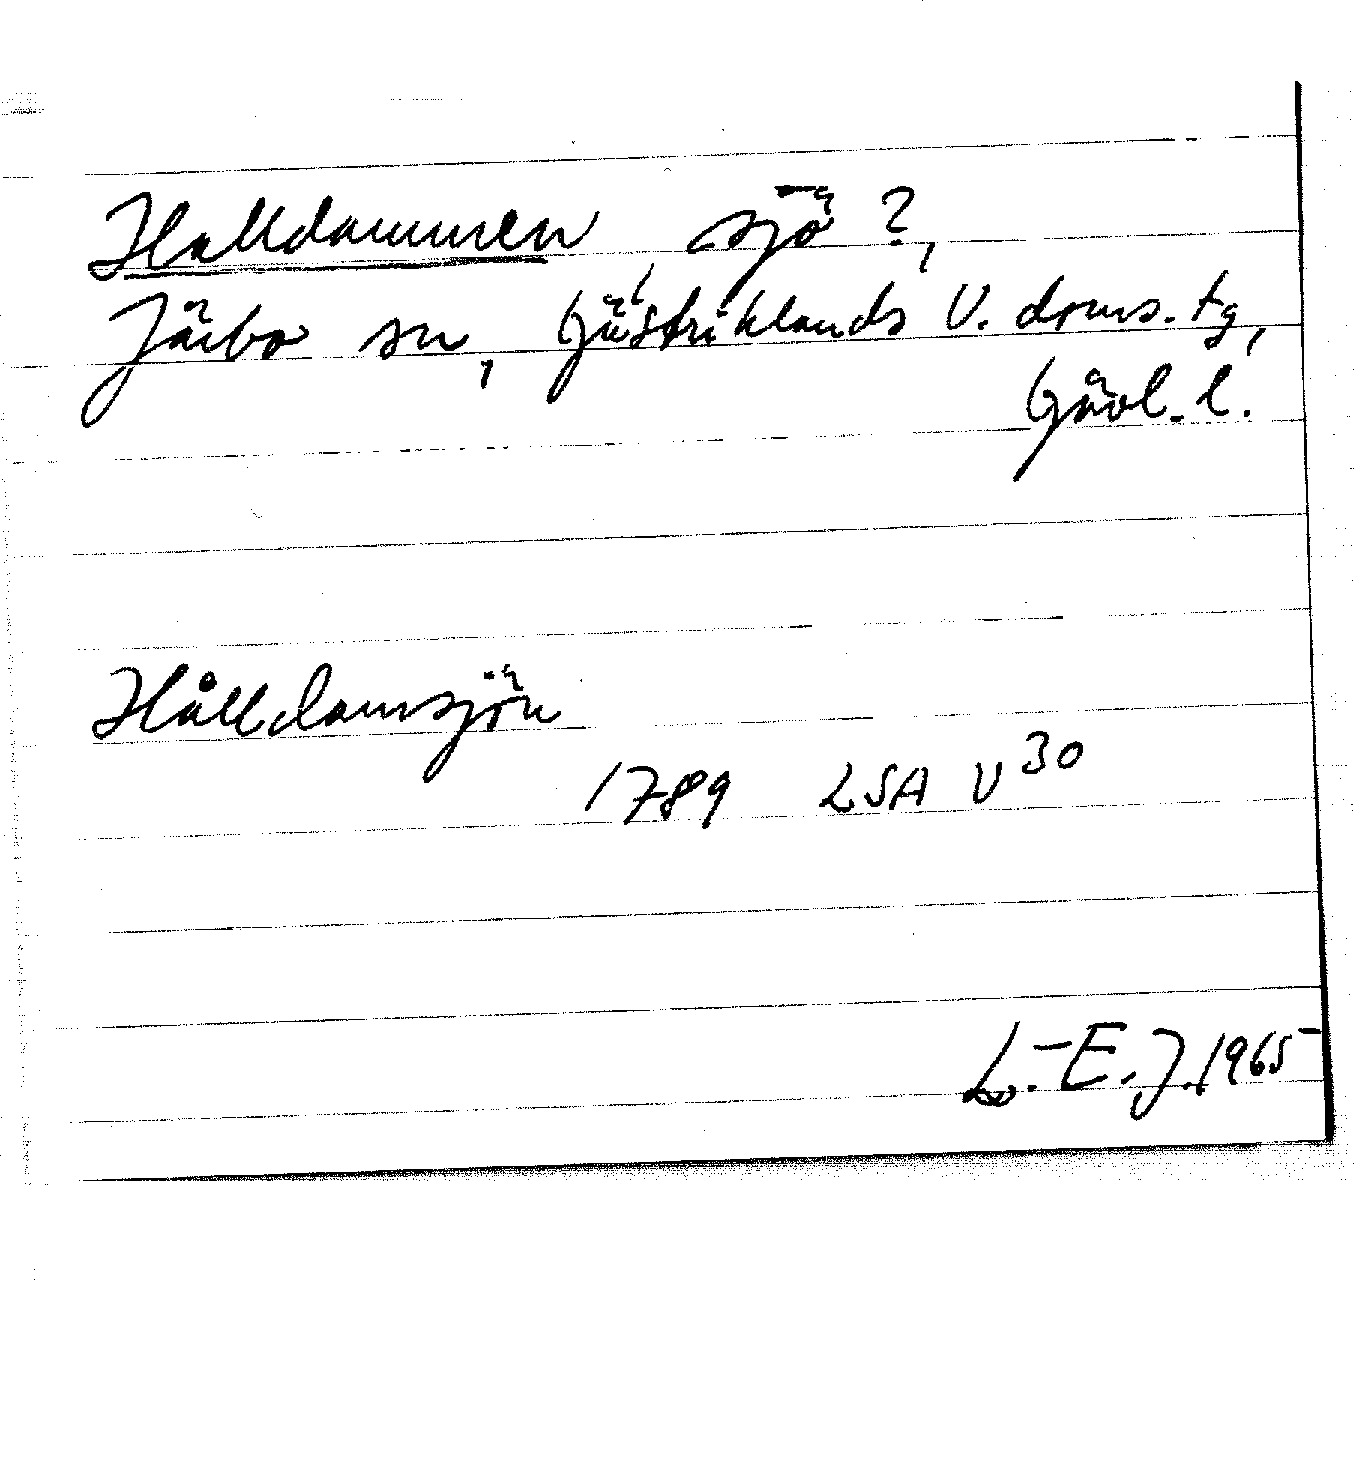 Halldammen, sjö?,
Järbo sn, Gästriklands V. doms. tg,
Gävl. l.
Hålldamsjön
1789 LSA V 30
L.-E. J. 1965